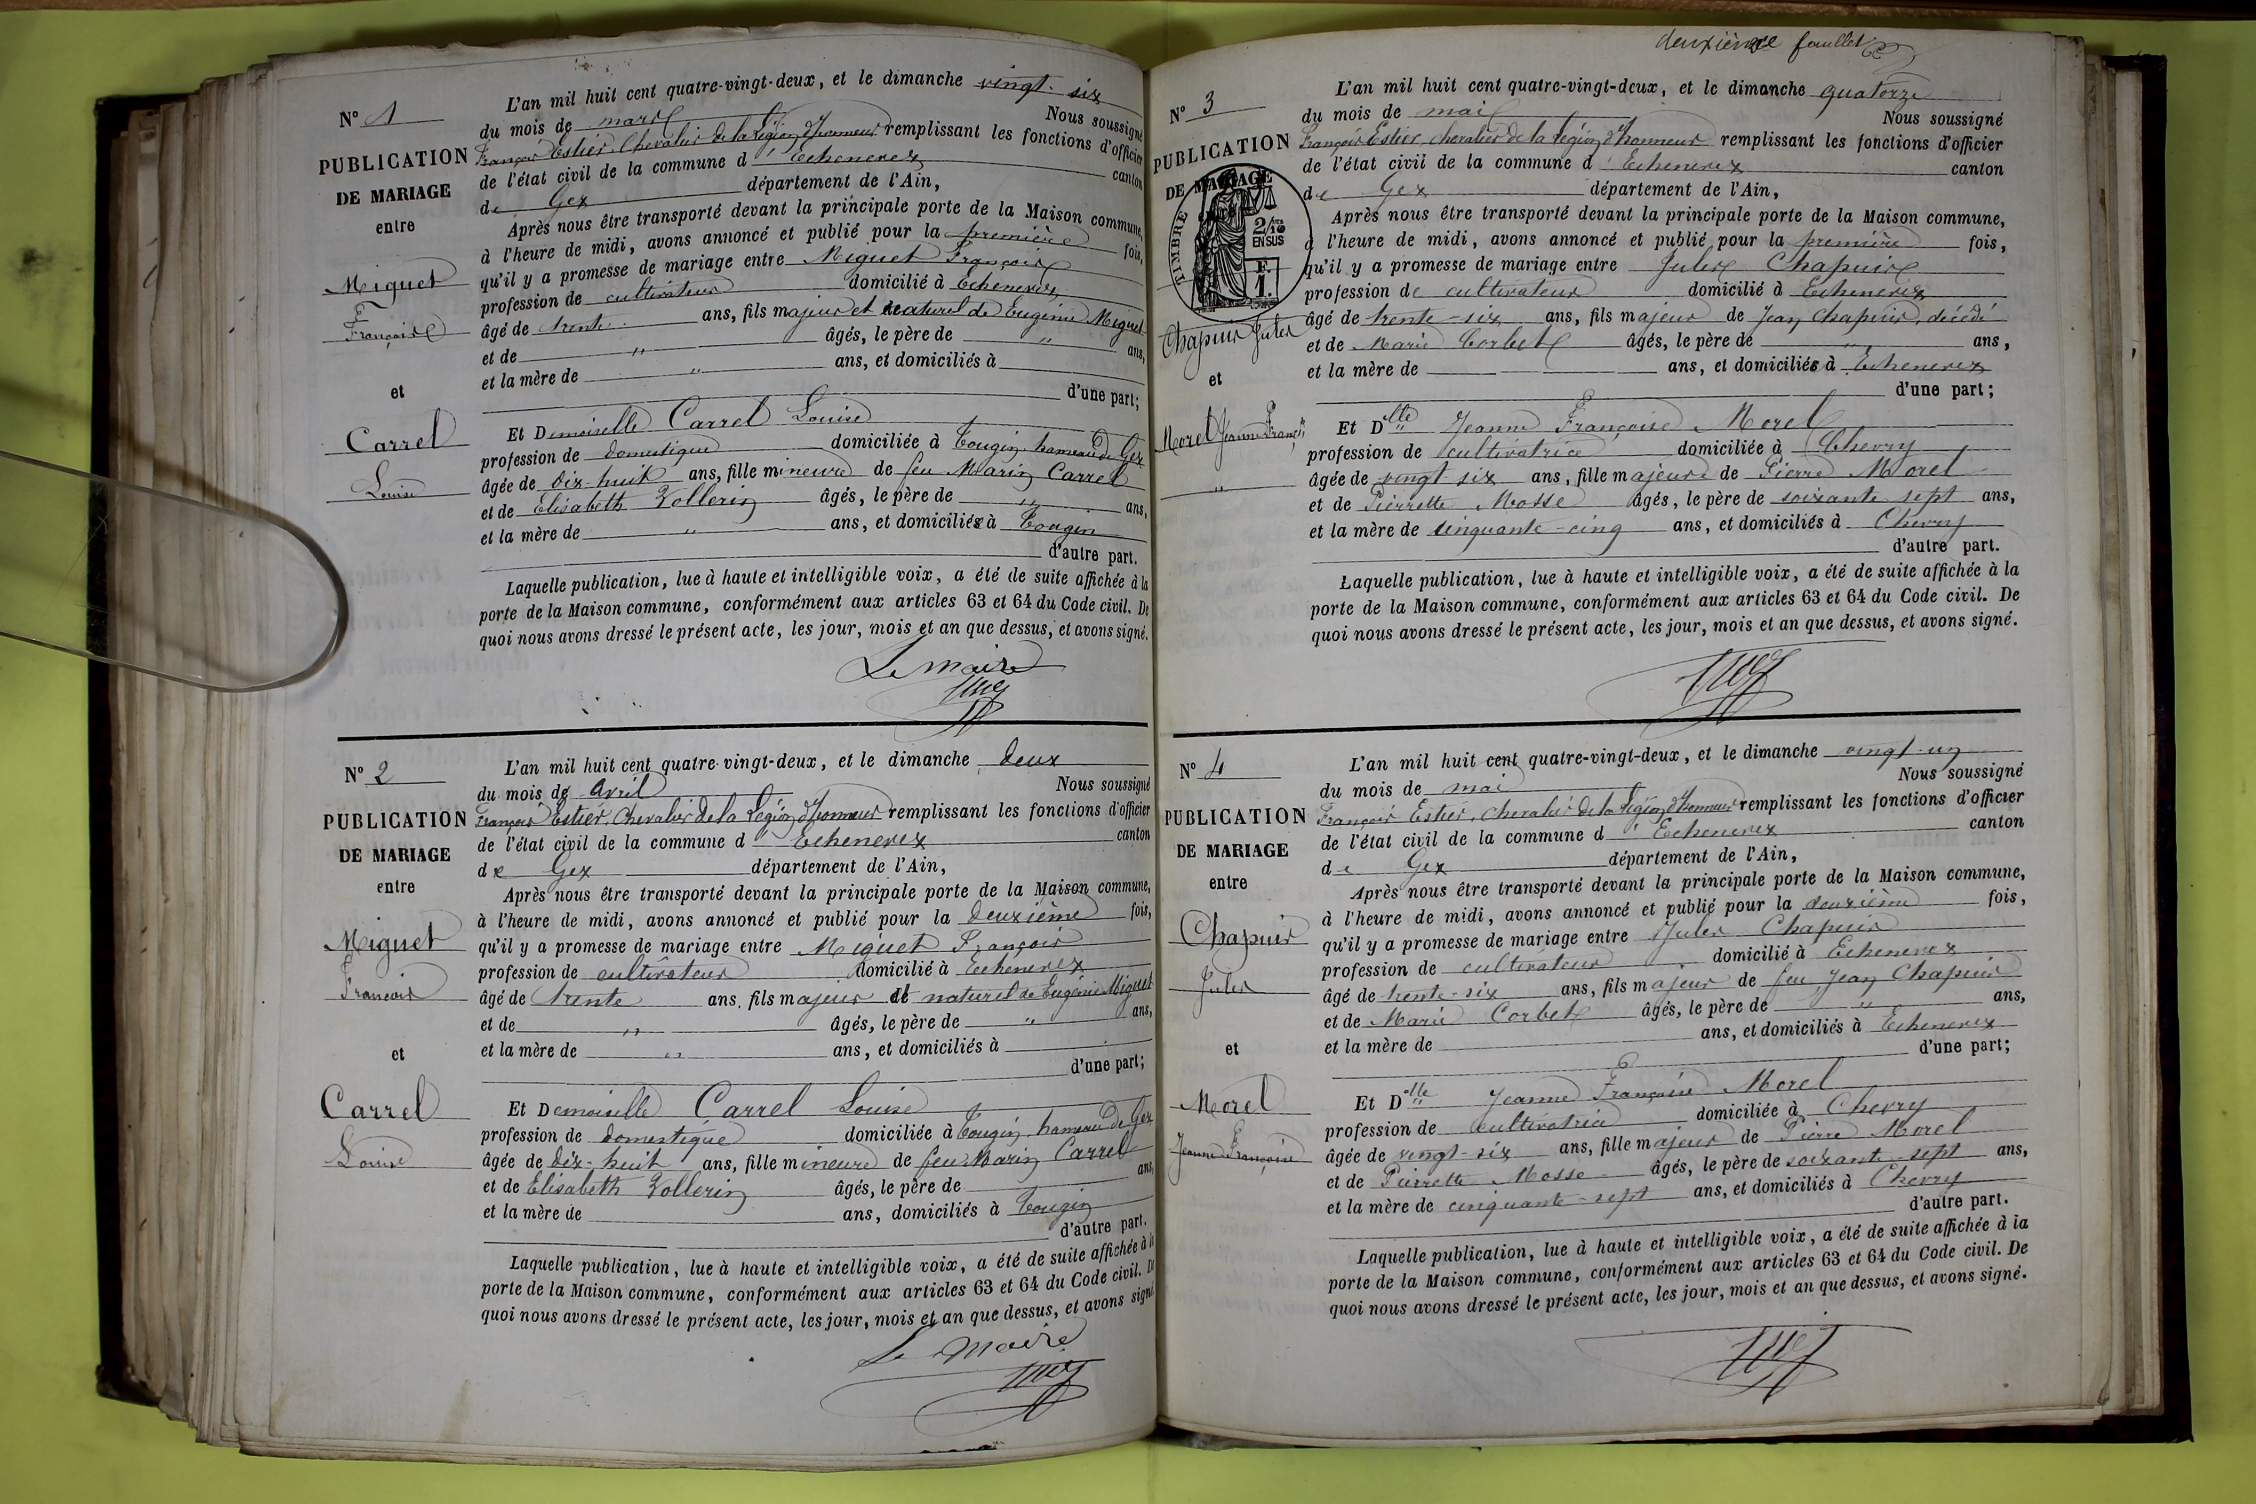 N° 1
PUBLICATION
DE MARIAGE
entre
Miquet
François
et
Carrel
Louise
L'an mil huit cent quatre-vingt-deux, et le dimanche vingt-six
du mois de mars Nous soussigné
François Estier, Chevalier de la Légion d'honneur remplissant les fonctions d'officier
de l'état civil de la commune d'Echenevex canton
de Gex département de l'Ain,
Après nous être transporté devant la principale porte de la Maison commune,
à l'heure de midi, avons annoncé et publié pour la première fois,
qu'il y a promesse de mariage entre Miquet François
profession de cultivateur domicilié à Echenevex
âgé de trente ans, fils majeur et naturel de Eugénie Miquet
et de " âgés, le père de " ans,
et la mère de " ans, et domiciliés à
d'une part;
Et Demoiselle Carrel Louise
profession de domestique domiciliée à Tougin, hameau de Gex
âgée de dix-huit ans, fille mineure de feu Marin Carrel
et de Elisabeth Vollerin âgés, le père de " ans,
et la mère de " ans, et domiciliés à Tougin
d'autre part.
Laquelle publication, lue à haute et intelligible voix, a été de suite affichée à la
porte de la Maison commune, conformément aux articles 63 et 64 du Code civil. De
quoi nous avons dressé le présent acte, les jour, mois et an que dessus, et avons signé.
Le maire
N° 2
PUBLICATION
DE MARIAGE
entre
Miquet
François
et
Carrel
Louise
L'an mil huit cent quatre-vingt-deux, et le dimanche deux
du mois de Avril Nous soussigné
François Estier, Chevalier de la Légion d'honneur remplissant les fonctions d'officier
de l'état civil de la commune d'Echenevex canton
de Gex département de l'Ain,
Après nous être transporté devant la principale porte de la Maison commune,
à l'heure de midi, avons annoncé et publié pour la deuxième fois,
qu'il y a promesse de mariage entre Miquet François
profession de cultivateur domicilié à Echenevex
âgé de trente ans, fils majeur et naturel de Eugénie Miquet
et de " âgés, le père de " ans,
et la mère de " ans, et domiciliés à
d'une part;
Et Demoiselle Carrel Louise
profession de domestique domiciliée à Tougin, hameau de Gex
âgée de dix-huit ans, fille mineure de feu Marin Carrel
et de Elisabeth Vollerin âgés, le père de ans,
et la mère de ans, domiciliés à Tougin
d'autre part.
Laquelle publication, lue à haute et intelligible voix, a été de suite affichée à la
porte de la Maison commune, conformément aux articles 63 et 64 du Code civil. De
quoi nous avons dressé le présent acte, les jour, mois et an que dessus, et avons signé.
Le Maire
deuxième feuillet
N° 3
PUBLICATION
DE MARIAGE
TIMBRE
2/10
EN SUS
F.
1.
Chapuis Jules
et
Morel Jeanne Franç
"
L'an mil huit cent quatre-vingt-deux, et le dimanche quatorze
du mois de mai Nous soussigné
François Estier, chevalier de la Légion d'honneur remplissant les fonctions d'officier
de l'état civil de la commune d'Echenevex canton
de Gex département de l'Ain,
Après nous être transporté devant la principale porte de la Maison commune,
à l'heure de midi, avons annoncé et publié pour la première fois,
qu'il y a promesse de mariage entre Jules Chapuis
profession de cultivateur domicilié à Echenevex
âgé de trente-six ans, fils majeur de Jean Chapuis, décédé
et de Marie Corbet âgés, le père de " ans,
et la mère de ans, et domiciliés à Echenevex
d'une part;
Et Dlle Jeanne Françoise Morel
profession de cultivatrice domiciliée à Chevry
âgée de vingt-six ans, fille majeure de Pierre Morel
et de Pierrette Mosse âgés, le père de soixante sept ans,
et la mère de cinquante-cinq ans, et domiciliés à Chevry
d'autre part.
Laquelle publication, lue à haute et intelligible voix, a été de suite affichée à la
porte de la Maison commune, conformément aux articles 63 et 64 du Code civil. De
quoi nous avons dressé le présent acte, les jour, mois et an que dessus, et avons signé.
N° 4
PUBLICATION
DE MARIAGE
entre
Chapuis
Jules
et
Morel
Jeanne Françoise
L'an mil huit cent quatre-vingt-deux, et le dimanche vingt-un
du mois de mai Nous soussigné
François Estier, chevalier de la Légion d'honneur remplissant les fonctions d'officier
de l'état civil de la commune d'Echenevex canton
de Gex département de l'Ain,
Après nous être transporté devant la principale porte de la Maison commune,
à l'heure de midi, avons annoncé et publié pour la deuxième fois,
qu'il y a promesse de mariage entre Jules Chapuis
profession de cultivateur domicilié à Echenevex
âgé de trente-six ans, fils majeur de feu Jean Chapuis
et de Marie Corbet âgés, le père de " ans,
et la mère de ans, et domiciliés à Echenevex
d'une part;
Et Dlle Jeanne Françoise Morel
profession de cultivatrice domiciliée à Chevry
âgée de vingt-six ans, fille majeur de Pierre Morel
et de Pierrette Mosse âgés, le père de soixante-sept ans,
et la mère de cinquante-sept ans, et domiciliés à Chevry
d'autre part.
Laquelle publication, lue à haute et intelligible voix, a été de suite affichée à la
porte de la Maison commune, conformément aux articles 63 et 64 du Code civil. De
quoi nous avons dressé le présent acte, les jour, mois et an que dessus, et avons signé.